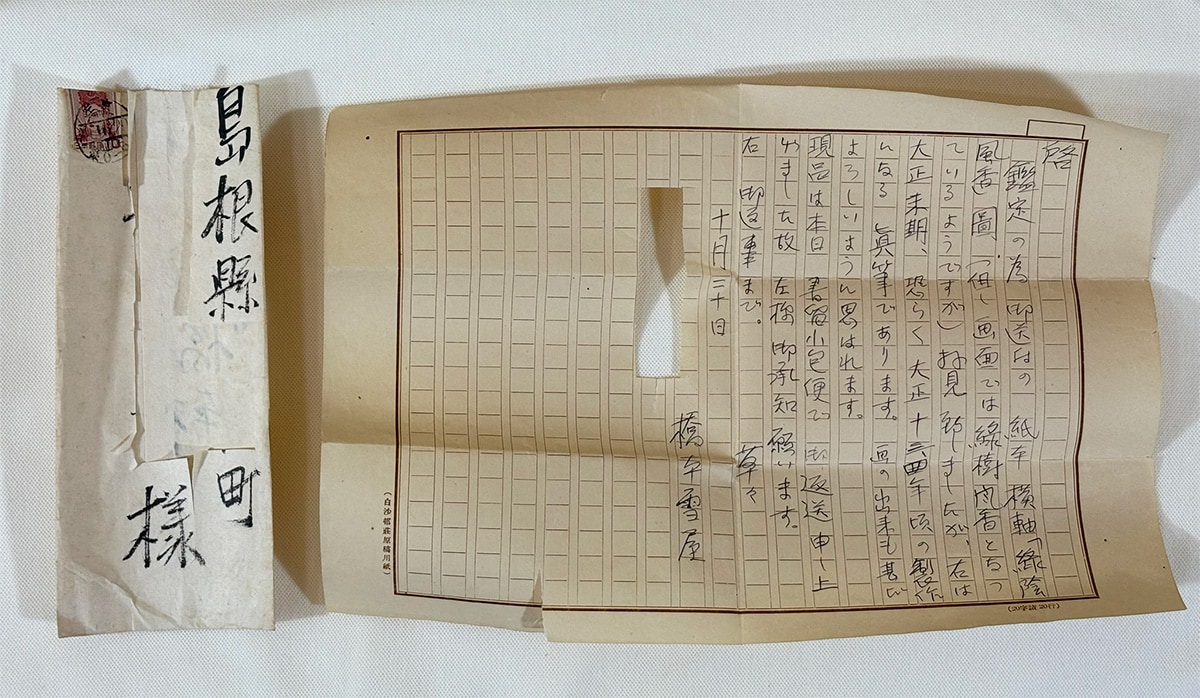 啓
鑑定の為 御送付の 紙本 横軸「緑陰
風香」圖、(但し画面では緑樹 香となつ
ているようですが) 拝見致しましたが、右は
大正末期、恐らく大正十三四年頃の製作
になる眞筆であります。画の出来も甚だ
よろしいように思はれます。
現品は本日 書留小包便で 御返送申し上
げました故 左様御承知願います。
右 御返事まで。 草々
十月三十日
橋本雪屋
(20字詰 20行)
(白沙邨莊原稿用紙)
島根縣
町
様